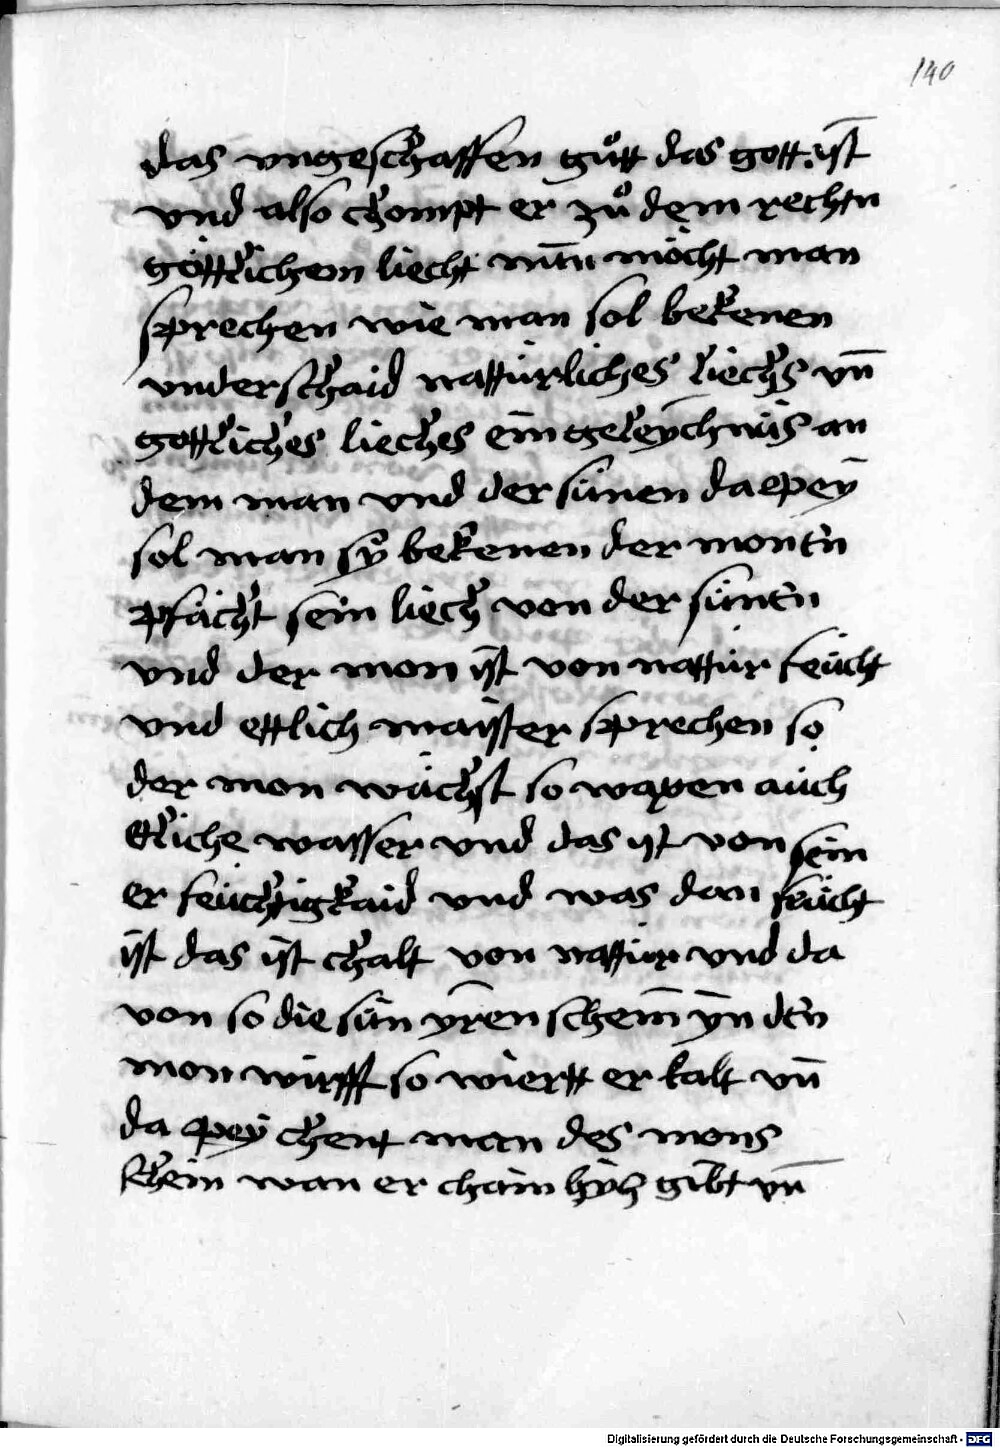 140
das vngeschaffen guͦtt das gott ist
vnd also chompt er zuͦ dem rechtn
göttlichem liecht nun möcht man
sprechen wie man sol bekenen
vnderschaid nattürliches liechs vn̄
gottliches liechtes ein geleychnüs an
dem man vnd der sünen da pey
sol man sy bekenen der mon
pfächt sein liech von der sün
vnd der mon ist von nattür feücht
vnd ettlich maister sprechen so
der mon wächst so waxen auch
etliche wasser vnd das ist von sein
er feüchtigkaid vnd was dan feücht
ist das ist chalt von nattür vnd da
von so die sün yren schein yn den
mon würfft so wiertt er kalt vn̄
da pey chent man des mons
schein wan er chain hytz gibt vn̄
Digitalisierung gefördert durch die Deutsche Forschungsgemeinschaft - DFG